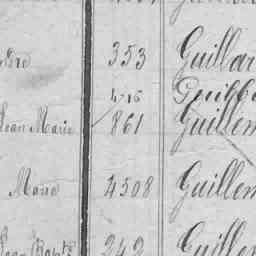 353 Guillar
416 Guilb
Jean Marie 861 Guillem
Mona 4508 Guillem
Jean Bapte 242 Guillem